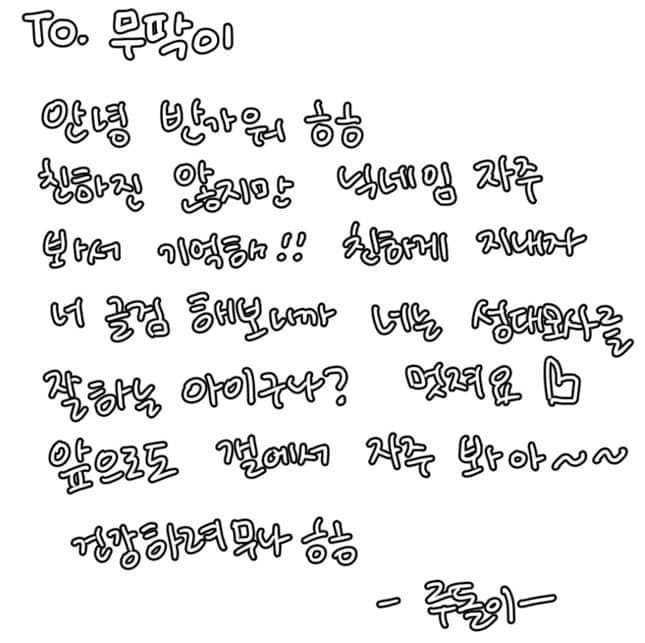 To. 무딱이
안녕 반가워 흐흐
친하진 않지만 닉네임 자주
봐서 기억해!! 친하게 지내자
너 글검 해보니까 너는 성대모사를
잘하는 아이구나? 멋져요 👍
앞으로도 갤에서 자주 봐아~~
건강하려무나 흐흐
- 주돌이-